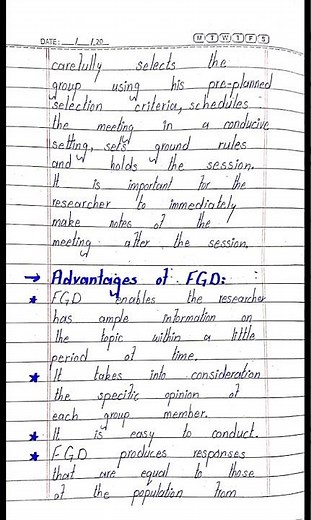 DATE: __/__/20__ M T W T F S
carefully selects the
group using his pre-planned
selection criteria, schedules
the meeting in a conducive
setting, sets ground rules
and holds the session.
It is important for the
researcher to immediately
make notes of the
meeting after the session.
→ Advantages of FGD:
★ FGD enables the researcher
has ample information on
the topic within a little
period of time.
★ It takes into consideration
the specific opinion of
each group member.
★ It is easy to conduct.
★ FGD produces responses
that are equal to those
of the population from